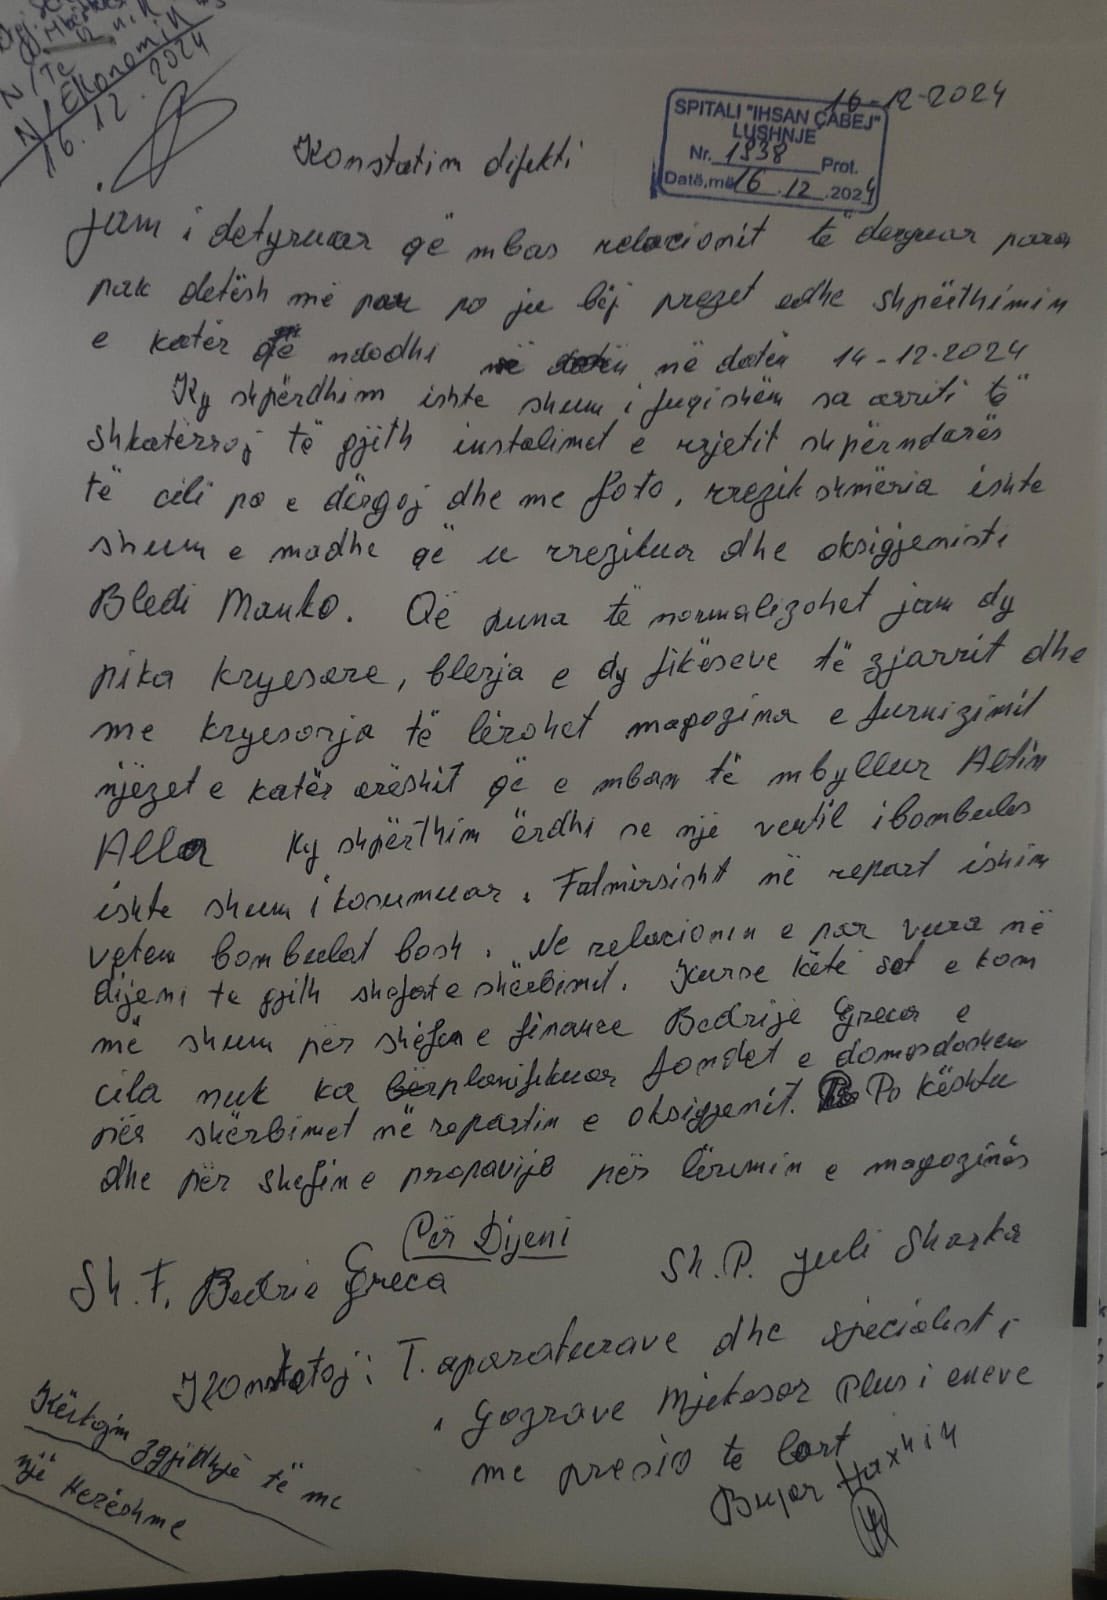 N/Ekonomik
16.12.2024
16-12-2024
SPITALI "IHSAN ÇABEJ"
LUSHNJE
Nr. 1938 Prot.
Datë,më 16.12.2024
Konstatim difekti
jam i detyruar që mbas relacionit të derguar para
pak detësh më par po ju bëj prezet edhe shpërthimin
e katër që ndodhi në datën 14-12-2024
Ky shpërdhim ishte shum i fuqishëm sa arriti të
shkatërroj të gjith instalimet e rrjetit shpërndarës
të cili po e dërgoj dhe me foto, rrezikshmëria ishte
shum e madhe që u rrezikua dhe oksigjenisti
Bledi Manko. Që puna të normalizohet jam dy
pika kryesore, blerja e dy fikëseve të zjarrit dhe
me kryesorja të lërohet magazina e furnizimit
njëzet e katër orëshit që e mban të mbyllur Altin
Alla Ky shpërthim ërdhi se një ventil i bombulës
ishte shum i konsumuar. Fatmirsisht në repart ishim
vetem bombulat bosh. Ne relacionin e par vura në
dijeni te gjith shefat e shërbimit. Kurse këtë sot e kam
më shum për shefen e finance Bedrije Greca e
cila nuk ka planifikuar fondet e domosdoshem
për shërbimet në repartin e oksigjenit. Po kështu
dhe për shefin e propavijo për lërimin e magazinës
Për Dijeni
Sh.F. Bedrie Greca
Sh.P. Juli Sharka
Konstatoj: T. aparaturave dhe specialist i
Gazrave Mjekesor Plus i eneve
me presio te lart
Bujar Haxhiu
Kërkojm zgjidhje të me
një hershme